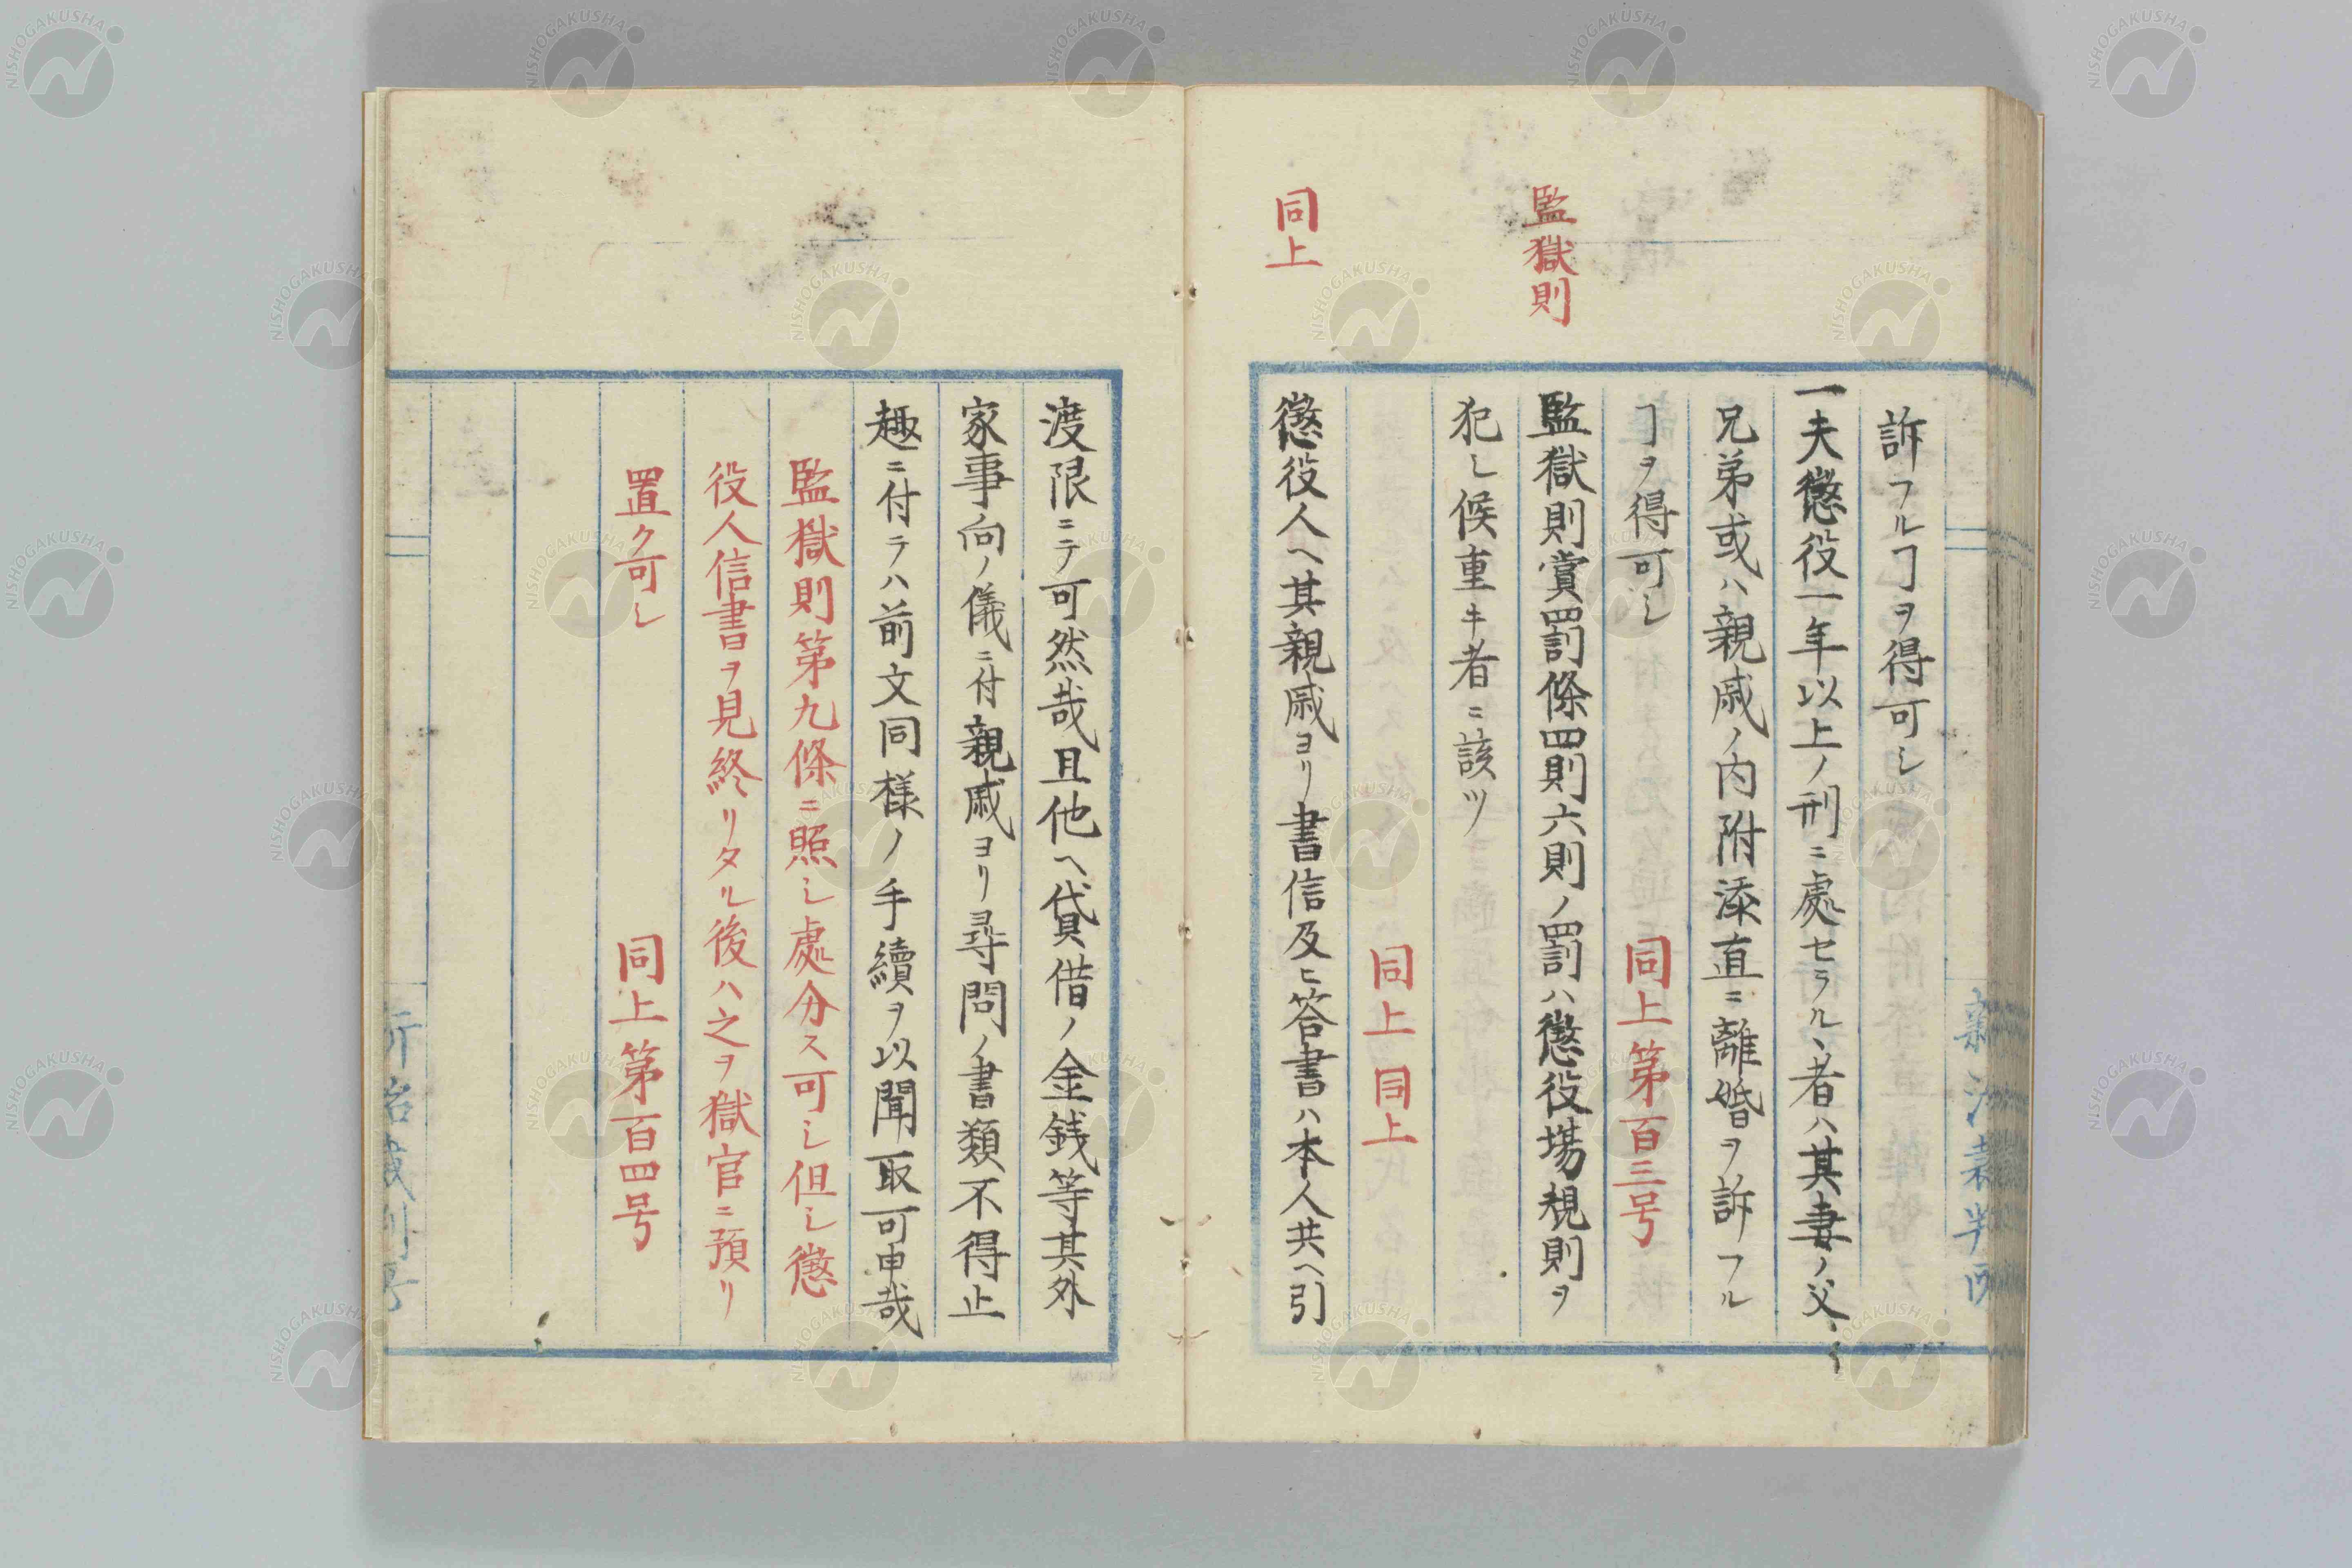 訴フルヿヲ得可シ
一夫懲役一年以上ノ刑ニ處セラルヽ者ハ其妻ノ父
兄弟或ハ親戚ノ内附添直ニ離婚ヲ訴フル
ヿヲ得可シ 同上第百三号
監獄則
監獄則賞罰條四則六則ノ罰ハ懲役場規則ヲ
犯シ候重キ者ニ該ツ
同上 同上
同上
懲役人ヘ其親戚ヨリ書信及ヒ答書ハ本人共ヘ引
渡限ニテ可然哉且他ヘ貸借ノ金銭等其外
家事向ノ儀ニ付親戚ヨリ尋問ノ書類不得止
趣ニ付テハ前文同様ノ手續ヲ以聞取可申哉
監獄則第九條ニ照シ處分ス可シ但シ懲
役人信書ヲ見終リタル後ハ之ヲ獄官ニ預リ
置ク可シ 同上第百四号
NISHOGAKUSHA